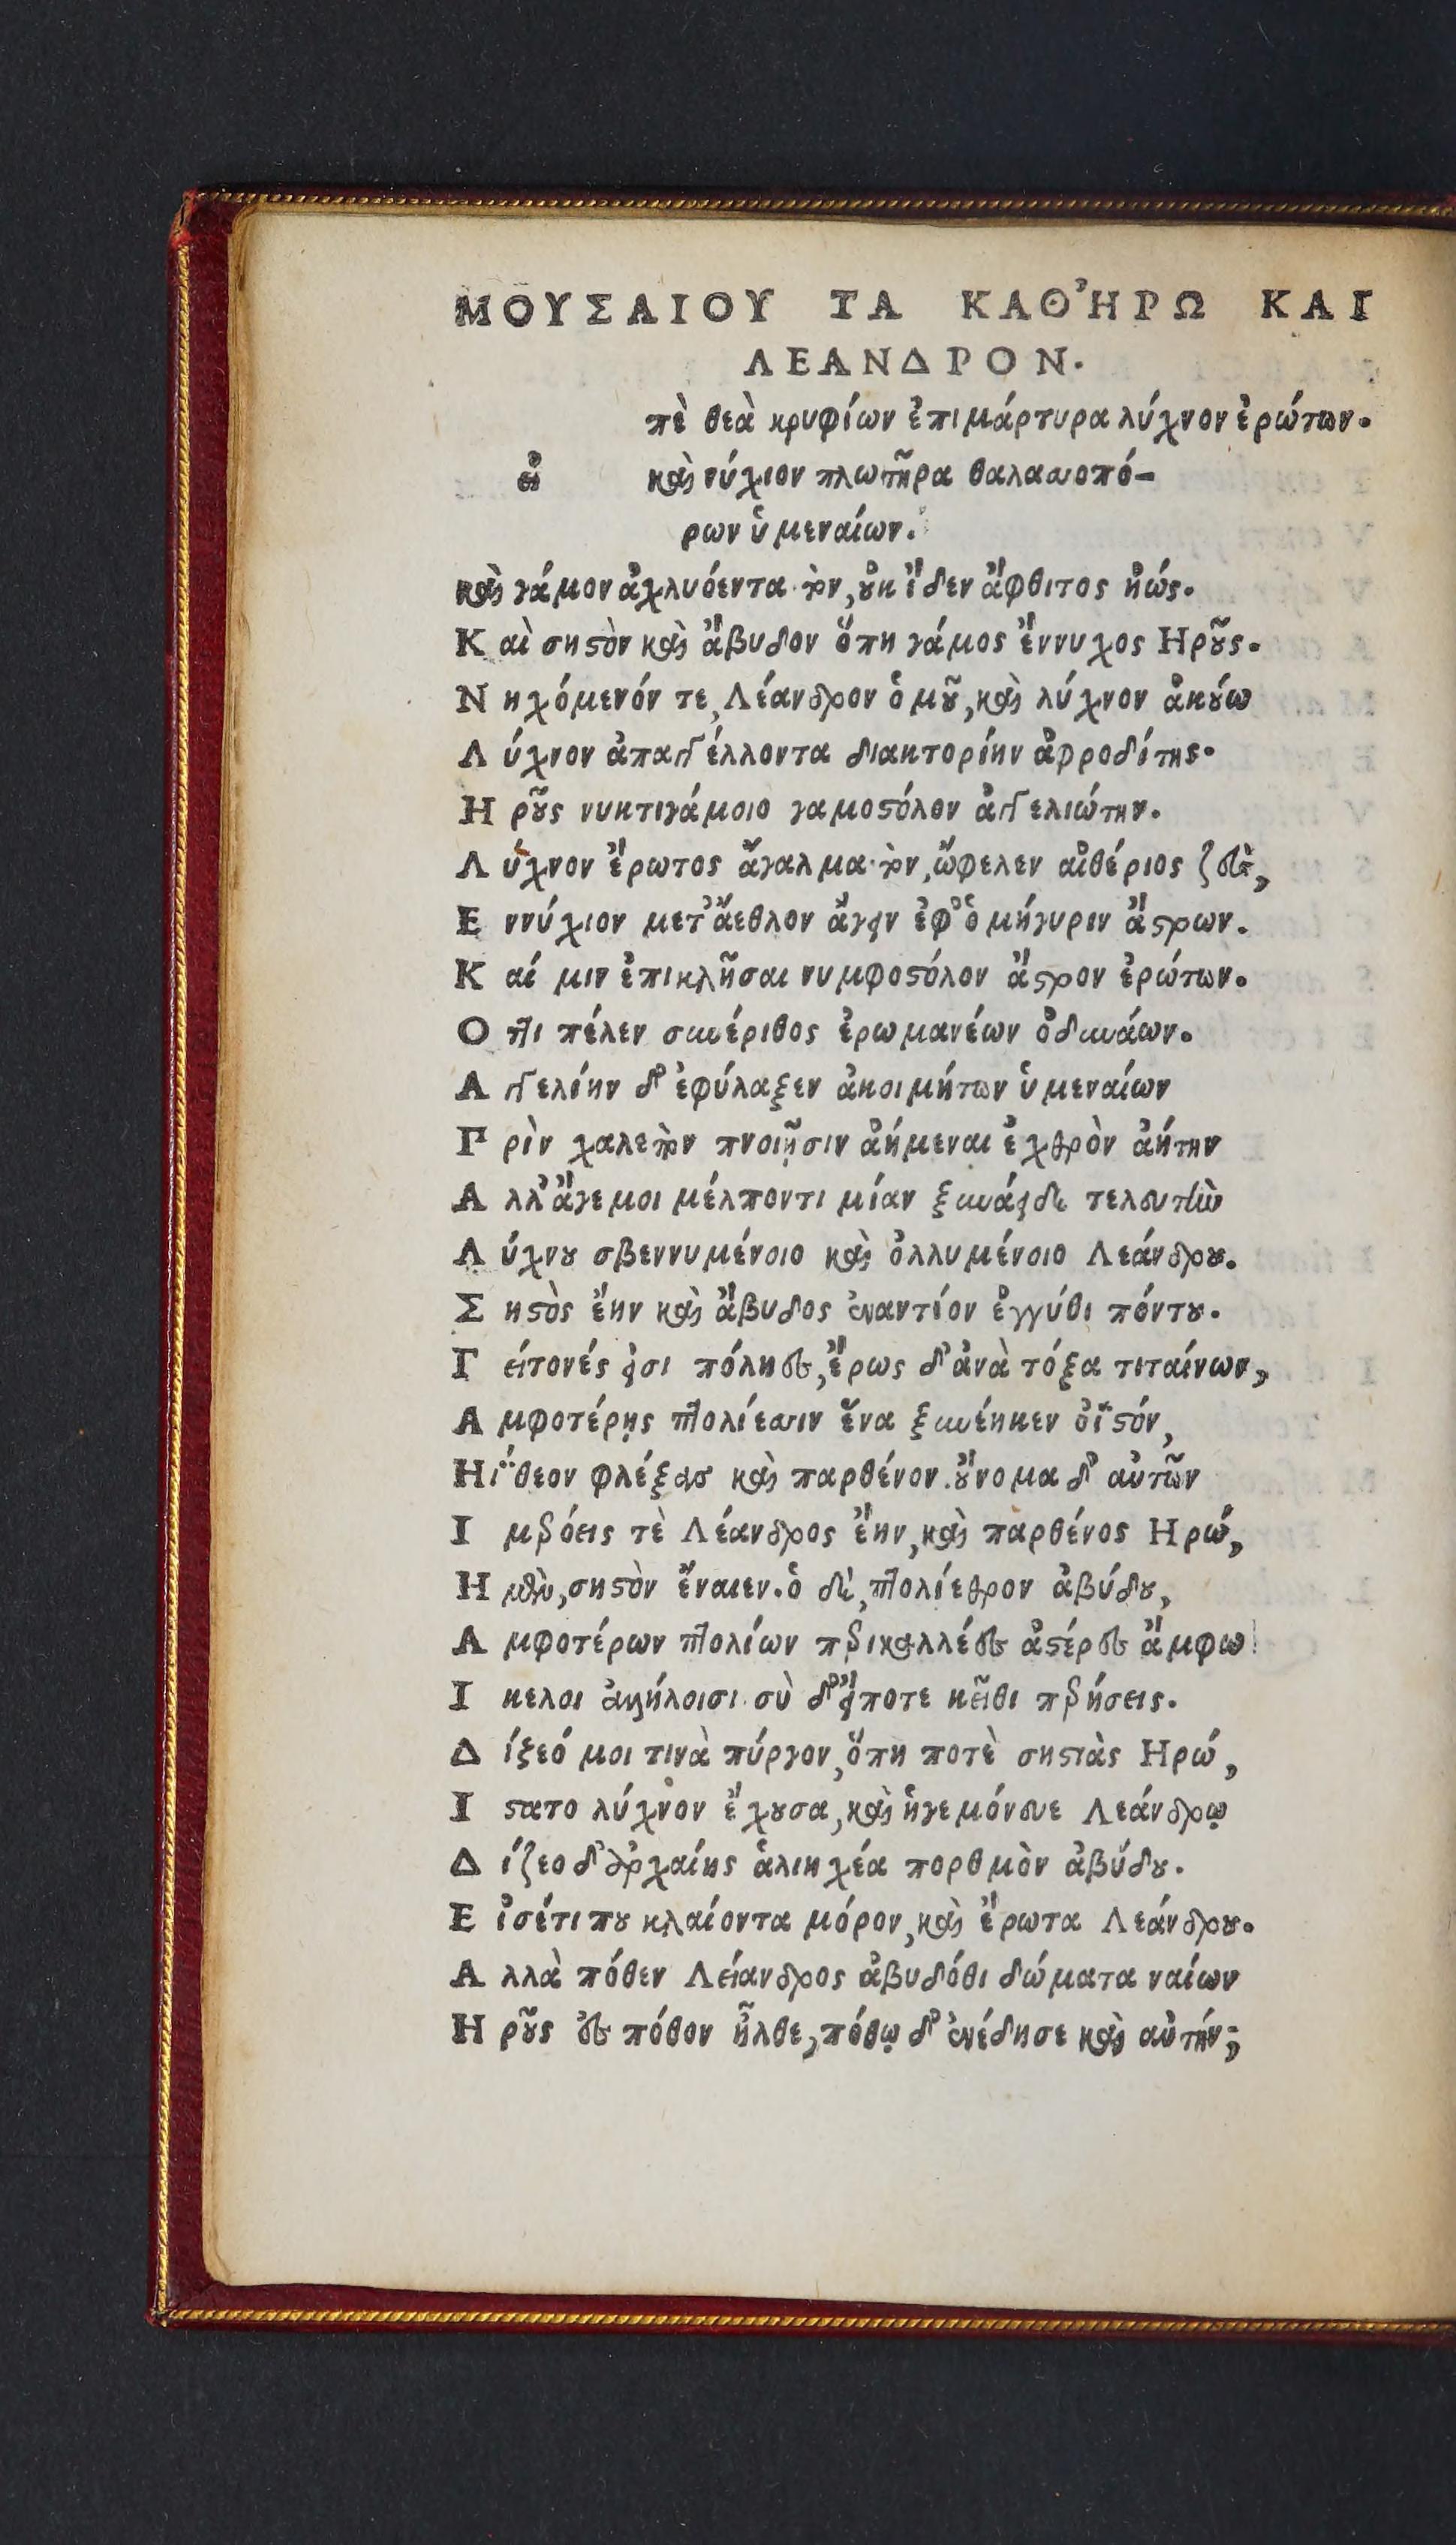 ΜΟΥΣΑΙΟΥ ΤΑ ΚΑΘ᾽ΗΡΩ ΚΑΙ
ΛΕΑΝΔΡΟΝ.
πὲ θεὰ κρυφίων ἐπιμάρτυρα λύχνον ἐρώτων.
εἰ καὶ νύχιον πλωτῆρα θαλασσοπό-
ρων ὑμεναίων.
καὶ γάμον ἀχλυόεντα τὸν, οὐκ ἴδεν ἄφθιτος ἠώς.
Καὶ σηστὸν καὶ ἄβυδον ὅπη γάμος ἔννυχος Ηροῦς.
Νηχόμενόν τε, Λέανδρον ὁμοῦ, καὶ λύχνον ἀκούω
Λύχνον ἀπαγγέλλοντα διακτορίην ἀφροδίτης.
Ηροῦς νυκτιγάμοιο γαμοστόλον ἀγγελιώτην.
Λύχνον ἔρωτος ἄγαλμα τὸν, ὤφελεν αἰθέριος ζεὺς,
Εννύχιον μετ᾽ ἄεθλον ἄγειν ἐφ᾽ ὁμήγυριν ἄστρων.
Καί μιν ἐπικλῆσαι νυμφοστόλον ἄστρον ἐρώτων.
Οττι πέλεν συνέριθος ἐρωμανέων ὀδυνάων.
Αγγελίην δ᾽ ἐφύλαξεν ἀκοιμήτων ὑμεναίων
Πρὶν χαλεπὸν πνοιῇσιν ἀήμεναι ἐχθρὸν ἀήτην
Αλλ᾽ ἄγε μοι μέλποντι μίαν ξυνάειδε τελευτὴν
Λύχνου σβεννυμένοιο καὶ ὀλλυμένοιο Λεάνδρου.
Σηστὸς ἔην καὶ ἄβυδος ἐναντίον ἐγγύθι πόντου.
Γείτονές εἰσι πόληες, ἔρως δ᾽ ἀνὰ τόξα τιταίνων,
Αμφοτέρῃς πτολίεσσιν ἕνα ξυνέηκεν ὀϊστόν,
Ηΐθεον φλέξας καὶ παρθένον. οὔνομα δ᾽ αὐτῶν
Ιμερόεις τὲ Λέανδρος ἔην, καὶ παρθένος Ηρώ,
Η μὲν, σηστὸν ἔναιεν. ὁ δὲ, πτολίεθρον ἀβύδου,
Αμφοτέρων πτολίων περικαλλέες ἀστέρες ἄμφω
Ικελοι ἀλλήλοισι. σὺ δ᾽ εἴποτε κεῖθι περήσεις.
Δίζεό μοι τινὰ πύργον, ὅπη ποτὲ σηστιὰς Ηρώ,
Ιστατο λύχνον ἔχουσα, καὶ ἡγεμόνευε Λεάνδρῳ
Δίζεο δ᾽ ἀρχαίης ἁλιηχέα πορθμὸν ἀβύδου.
Εἰσέτι που κλαίοντα μόρον, καὶ ἔρωτα Λεάνδρου.
Αλλὰ πόθεν Λείανδρος ἀβυδόθι δώματα ναίων
Ηροῦς ἐς πόθον ἦλθε, πόθῳ δ᾽ ἐνέδησε καὶ αὐτήν;